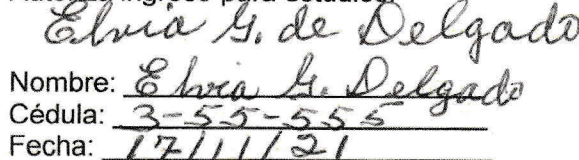 Elvia G. de Delgado
Nombre: Elvia G. Delgado
Cédula: 3-55-555
Fecha: 17/11/21